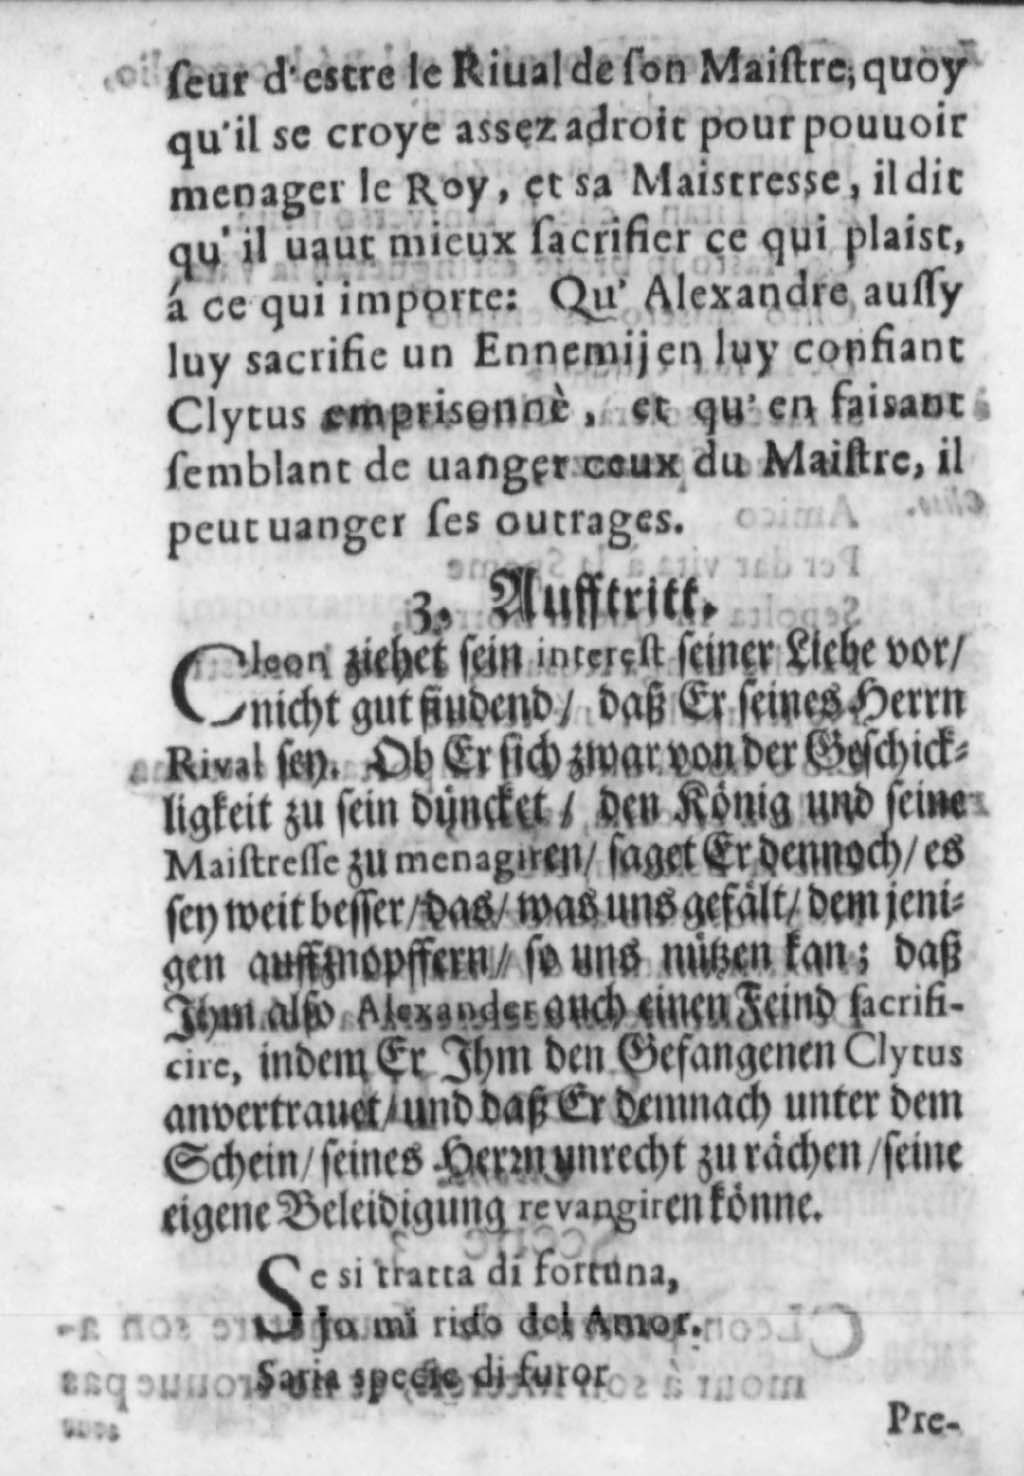 ſeur d'estre le Riual de ſon Maiſtre, quoy
qu'il se croye assez adroit pour pouuoir
menager le Roy, et sa Maistresse, il dit
qu'il uaut mieux ſacrifier ce qui plaist,
á ce qui importe: Qu' Alexandre auſſy
luy sacrifie un Ennemij en luy confiant
Clytus emprisonnè, et qu'en faisant
ſemblant de uanger ceux du Maiſtre, il
peut uanger ſes outrages.
3. Auffſtritt.
Cleon ziehet ſein intereſt ſeiner Liebe vor/
nicht gut findend/ daß Er ſeines Herrn
Rival ſey. Ob Er ſich zwar von der Geſchick-
ligkeit zu ſein düncket/ den König und ſeine
Maiſtreſſe zu menagiren/ ſaget Er dennoch/ es
ſey weit beſſer/ das/ was uns gefält/ dem jeni-
gen auffzuopffern/ ſo uns nützen kan; daß
Ihm alſo Alexander auch einen Feind ſacrifi-
cire, indem Er Ihm den Gefangenen Clytus
anvertrauet/ und daß Er demnach unter dem
Schein/ ſeines Herrn unrecht zu rächen/ ſeine
eigene Beleidigung revangiren könne.
Se si tratta di fortuna,
Jo mi rido del Amor.
Saria specie di furor
Pre-